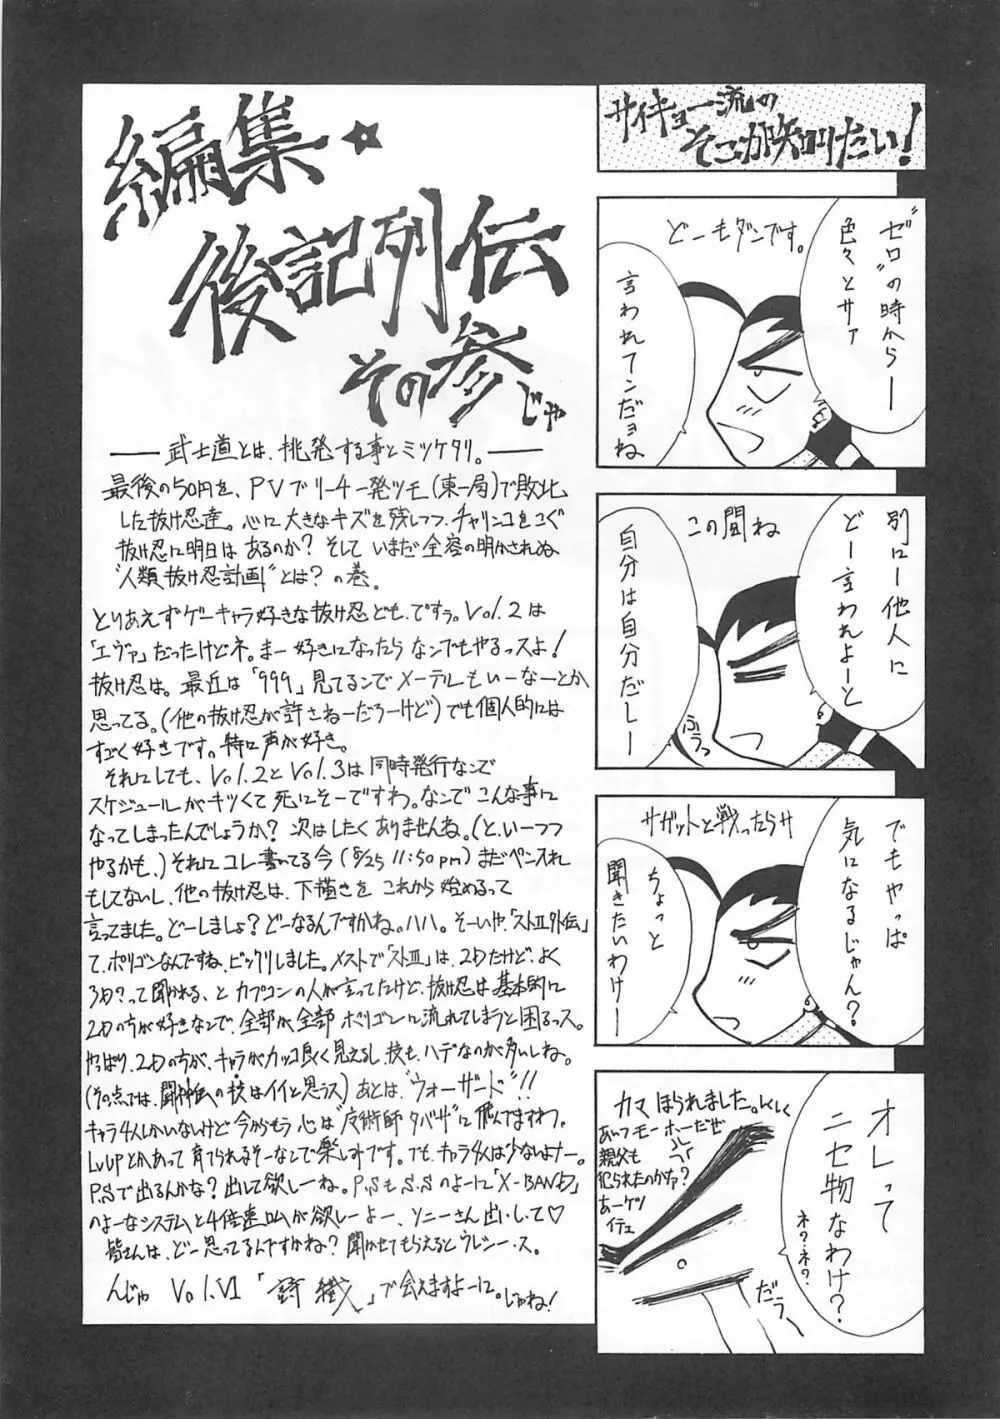 編集☆
後記列伝
その参じゃ
――武士道とは、挑発する事とミツケタリ。――
最後の50円を、PVでリーチ一発ツモ(東一局)で敗北
した抜け忍達。心に大きなキズを残しつつ、チャリンコをこぐ
抜け忍に明日はあるのか?そして いまだ全容の明かされぬ
"人類抜け忍計画"とは?の巻。
とりあえずゲーキャラ好きな抜け忍ども、ですぅ。Vol.2は
「エヴァ」だったけどネ。まー 好きになったらなんでもやるっスよ!
抜け忍は。最近は「999」見てるんでメーテルもいーなーとか
思ってる。(他の抜け忍が許さねーだろーけど)でも個人的には
すごく好きです。特に声が好き。
それにしても、Vol.2とVol.3は同時発行なんで
スケジュールがキツくて死にそーですわ。なんでこんな事に
なってしまったんでしょうか?次はしたくありませんね。(と、いーつつ
やるかも、)それにコレ書いてる今(8/25 11:50pm)まだペン入れ
もしてないし、他の抜け忍は、下描きをこれから始めるって
言ってました。どーしましょ?どーなるんですかね。ハハ。そーいや、「ストⅡ外伝」
て、ポリゴンなんですね、ビックリしました。メストで「ストⅢ」は、2Dだけど、よく
3D?って聞かれる、とカプコンの人が言ってたけど、抜け忍は基本的に
2Dの方が好きなんで、全部が全部ポリゴンに流れてしまうと困るっス。
やっぱり2Dの方が、キャラがカッコ良く見えるし、技も、ハデなのが多いしね。
(その点では、闘神伝の技はイイと思うス)あとは、"ウォーザード"!!
キャラ4人しかいないけど今からもう心は"魔術師タバサ"に飛んでますわ。
LvUPとかあって育てられるそーなんで楽しみです。でも、キャラ4人は少ないよナー。
P.Sで出るんかな?出して欲しーね。P.SもS.Sのよーに「X-BAND」
のよーなシステムと4倍速ロムが欲しーよー、ソニーさん出して♡
皆さんは、どー思ってるんですかね?聞かせてもらえるとウレシー、ス。
んじゃ Vol.Ⅵ「 」で会えますよーに。じゃね!
サイキョー流の
そこが知りたい!
どーもダンです。
"ゼロ"の時からー
色々とサァ
言われてンだョね
この間ね
別にー他人に
どー言われよーと
自分は自分だしー
ふぅっ
サガットと戦ったらサ
でもやっぱ
気になるじゃん?
ちょっと
聞きたいわけー
カマほられました。しくしく
あいつモーホーだぜ
親父も
犯られたのかナァ?
あーケツ
イテェ
オレって
ニセ物なわけ?
ネ?ネ?
だぅー